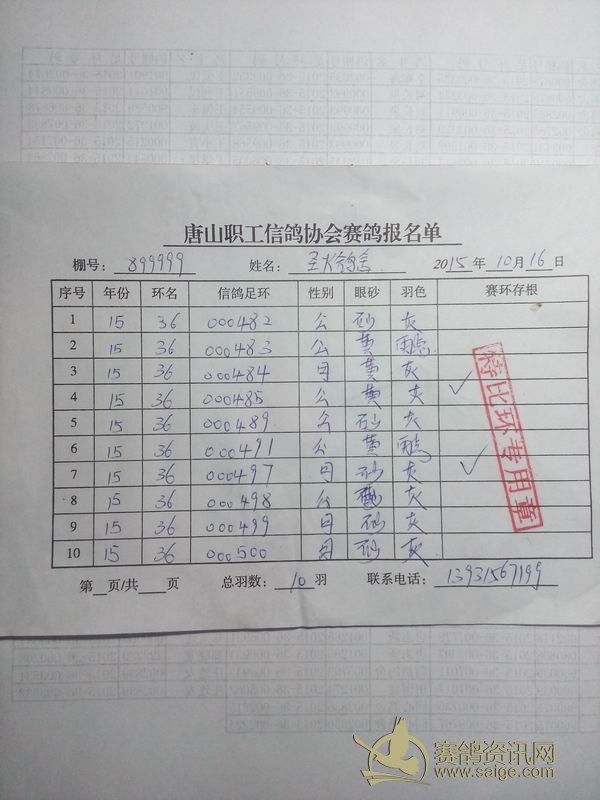 唐山职工信鸽协会赛鸽报名单
棚号: 899999 姓名: 2015年10月16日
序号 年份 环名 信鸽足环 性别 眼砂 羽色 赛环存根
1 15 36 000482 公 砂 灰
2 15 36 000483 公 黄
3 15 36 000484 母 黄 灰
4 15 36 000485 公 黄 灰 ✓
5 15 36 000489 公 砂 灰
6 15 36 000491 公 黄
7 15 36 000497 母 砂 灰 ✓
8 15 36 000498 公 灰
9 15 36 000499 母 砂 灰
10 15 36 000500 母 砂 灰
特比环专用章
第 页/共 页 总羽数: 10 羽 联系电话: 13931567199
赛鸽资讯网
www.saige.com